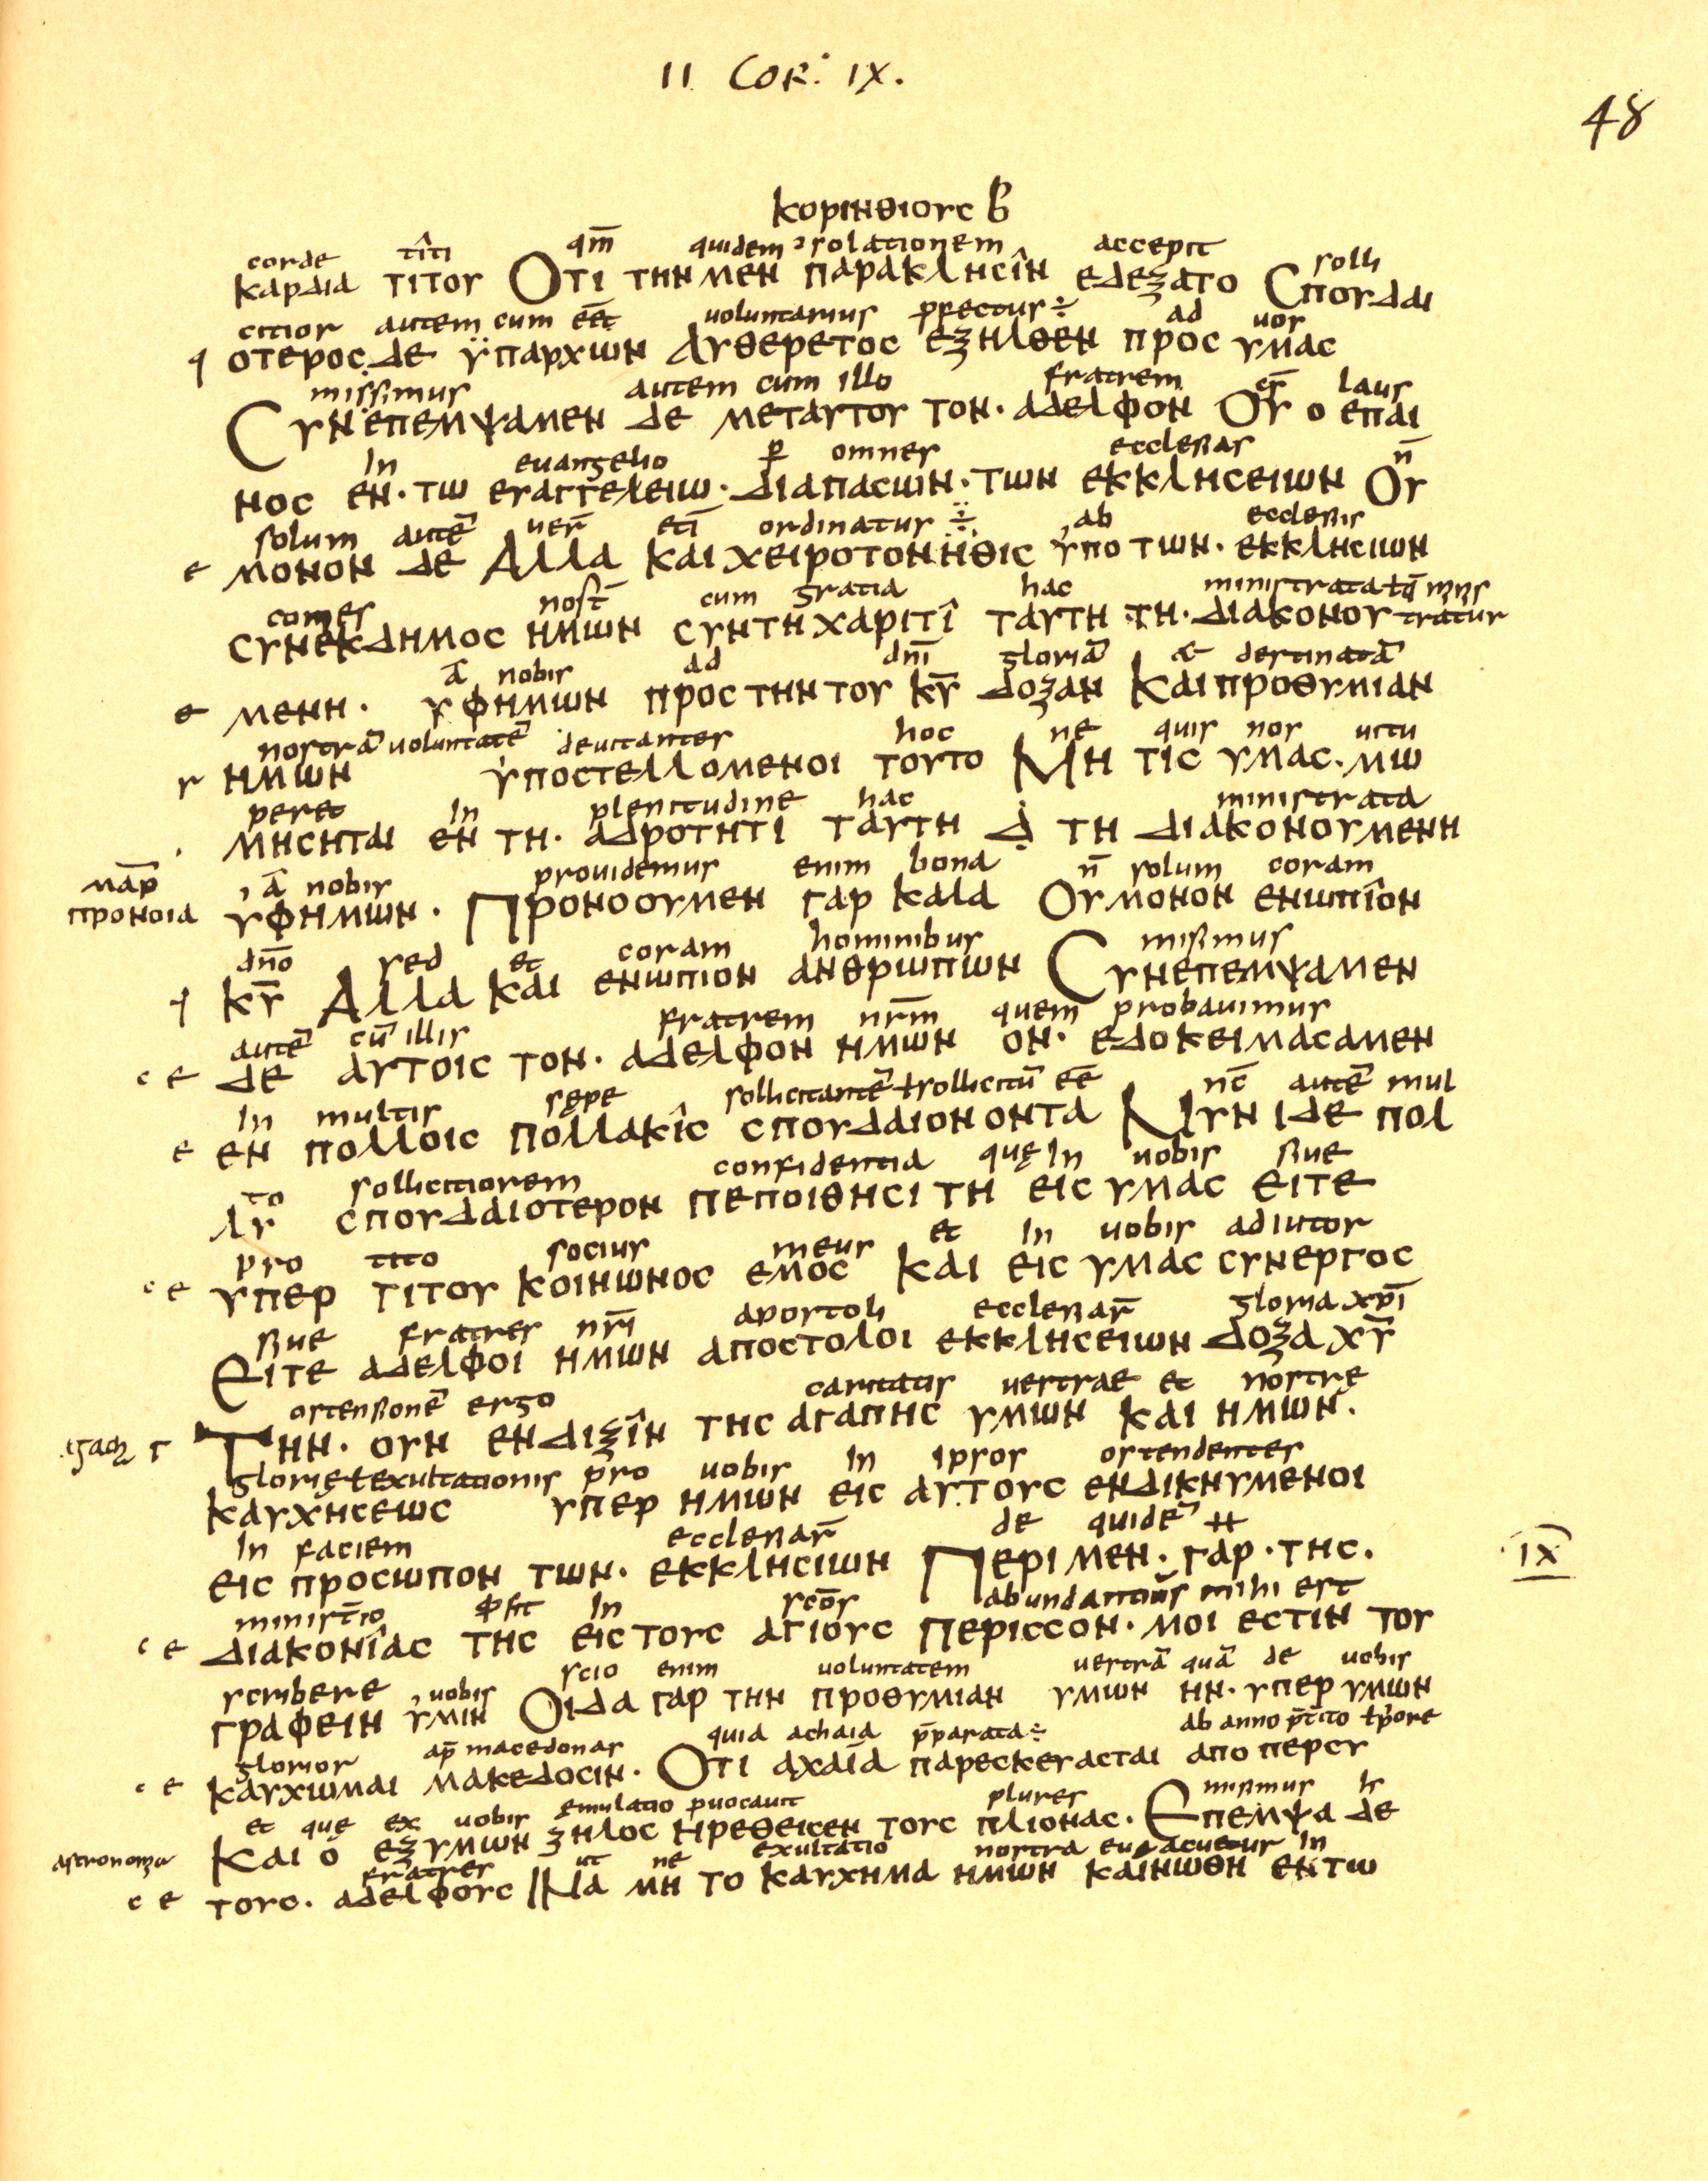 II COR: IX.
48
κορινθιογς β
corde titi qm̄ quidem ɔsolationem accepit solli
καρδια τιτογ Οτι την μεν παρακλησîν εδεξατο Σπογδαι
citior autem cum eēt voluntarius pfectus÷ ad vos
οτερος δε ϋπαρχων Αγθερετος εξηλθεν προς γμας
missimus autem cum illo fratrem cs̄ laus
Σγνεπεμψαμεν δε μεταγτογ τον· αδελφον Ογ ο επαι
In evangelio p omnes ecclesias n̄
νος εν· τω εγαγγελειω· διαπασων· των εκκλησειων Ογ
solum autē ver̄ etī ordinatus÷ ab ecclesiis
ε μονον δε Αλλα και χειροτονηθις γπο των· εκκλησιων
comes nost̄ cum gratia hac ministrata ł q̄ minis
σγνεκδημος ημων σγντηχαριτî ταγτη τη· διακονογ tratur
ā nobis ad dn̄i gloriā et destinatā
ε μενη· γφημων προς την τογ κγ̄ δοξαν Και προθγμιαν
nostrā voluntatē devitantes hoc ne quis nos vitu
γ ημων γποστελλομενοι τογτο Μη τις γμας· μω
peret In plenitudine hac ministrata
μησηται εν τη· αδροτητι ταγτη Δ τη διακονογμενη
providemus enim bona n̄ solum coram
προνοια ā nobis
γφημων· Προνοογμεν γαρ καλα Ογμονον ενωπîον
dn̄o sed et coram hominibus misimus
κγ̄ Αλλα και ενωπιον ανθρωπων Σγνεπεμψαμεν
autē cū illis fratrem nr̄m quem probavimus
c ε δε αγτοις τον· αδελφον ημων ον· εδοκειμασαμεν
In multis sępe sollicitantē ł sollicitū eē nc̄ autē mul
ε εν πολλοις πολλακîς σπογδαιον οντα Νγν ιδε πολ
to sollicitiorem confidentia quę In vobis sive
λγ σπογδαιοτερον πεποιθησι τη εις γμας ειτε
pro tito socius meus et In vobis adiutor
c ε γπερ τιτογ κοινωνος εμος και εις γμας σγνεργος
sive fratres nr̄i apostoli ecclesiar̄ gloria xp̄i
Ειτε αδελφοι ημων αποστολοι εκκλησειων δοξα χγ̄
ostensionē ergo caritatis vestrae et nostrę
Την· ογν ενδιξîν της αγαπης γμων και ημων.
glorię ł exultationis pro vobis In ipsos ostendentes
καγχησεως γπερ ημων εις αγτογς ενδικνγμενοι
In faciem ecclesiar̄ de quidē
εις προσωπον των· εκκλησιων Περι μεν· γαρ· της.
IX
minist̄io In sc̄os abundantius mihi est
c ε διακονîας της εις τογς αγιογς Περισσον· μοι εστιν τογ
scribere vobis scio enim voluntatem vestrā quā de vobis
γραφειν γμιν Οιδα γαρ την προθγμιαν γμων ην· γπερ γμων
glorior ap̄ macedonas quia achaia p̄parata÷ ab anno p̄tito ł p̄ore
c ε καγχωμαι μακεδοσιν· Οτι αχαΐα παρεσκεγασται απο περσγ
et que ex vobis emulatio pvocavit plures misimus
Και ο εξ γμων ζηλος Ηρεθεισεν τογς πλιονας· Επεμψα δε
fratres ut ne exultatio nostra evacuetur In
c ε τογς· αδελφογς Ινα μη το καγχημα ημων καινωθη εν τω